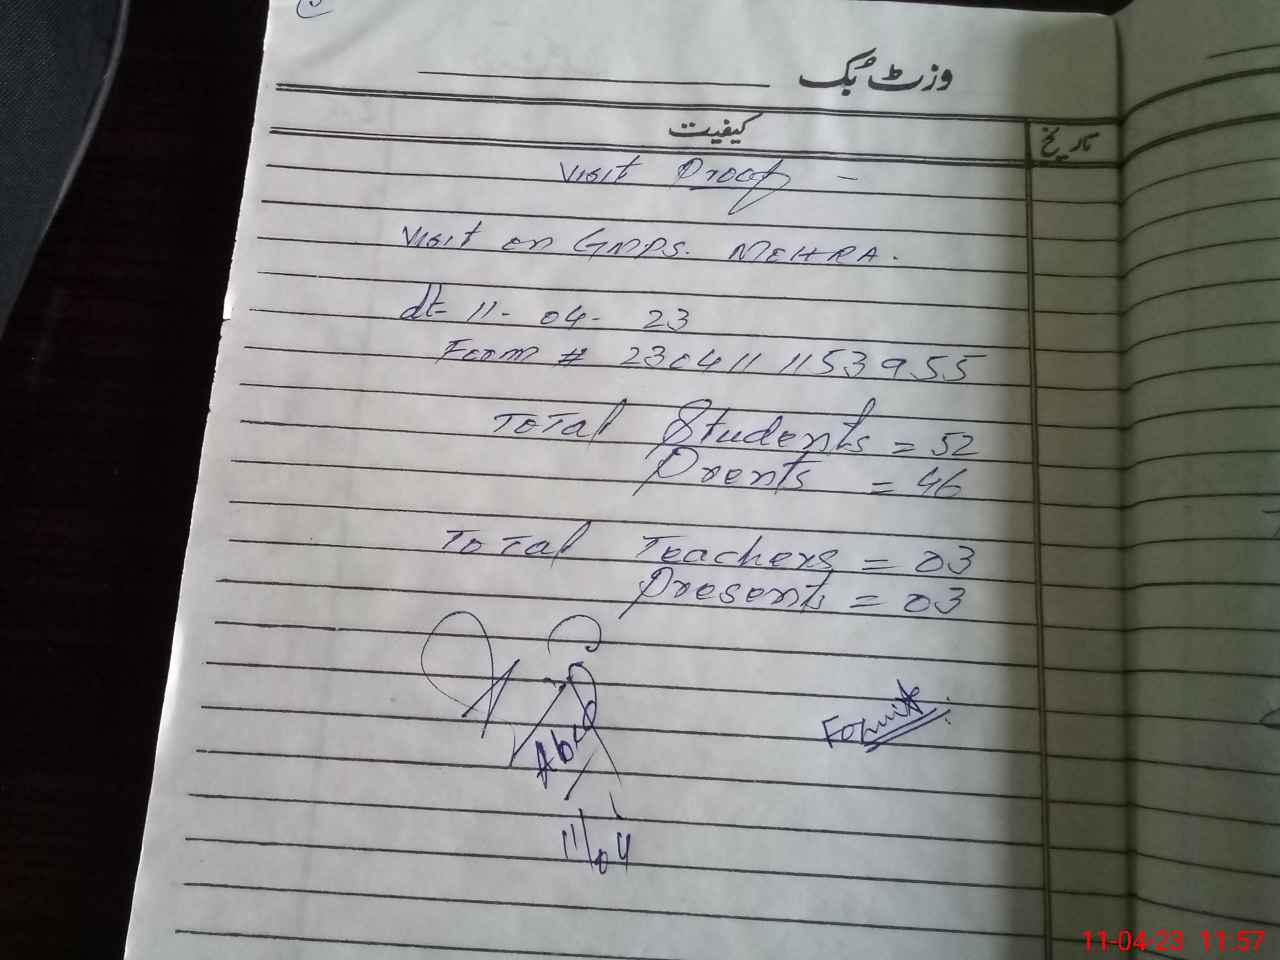 وزٹ بک
کیفیت
تاریخ
Visit Proof -
Visit on GMPS. MEHRA.
dt- 11- 04- 23
Form # 230411 1153955
Total Students = 52
Prents = 46
Total Teachers = 03
Presents = 03
11/04
11-04-23 11:57